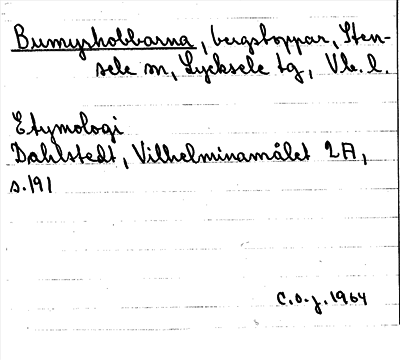 Bumyrkobbarna, bergstoppar, Sten-
sele sn, Lycksele tg, Vb. l.
Etymologi
Dahlstedt, Vilhelminamålet 2A,
s.191
C.O.J. 1964